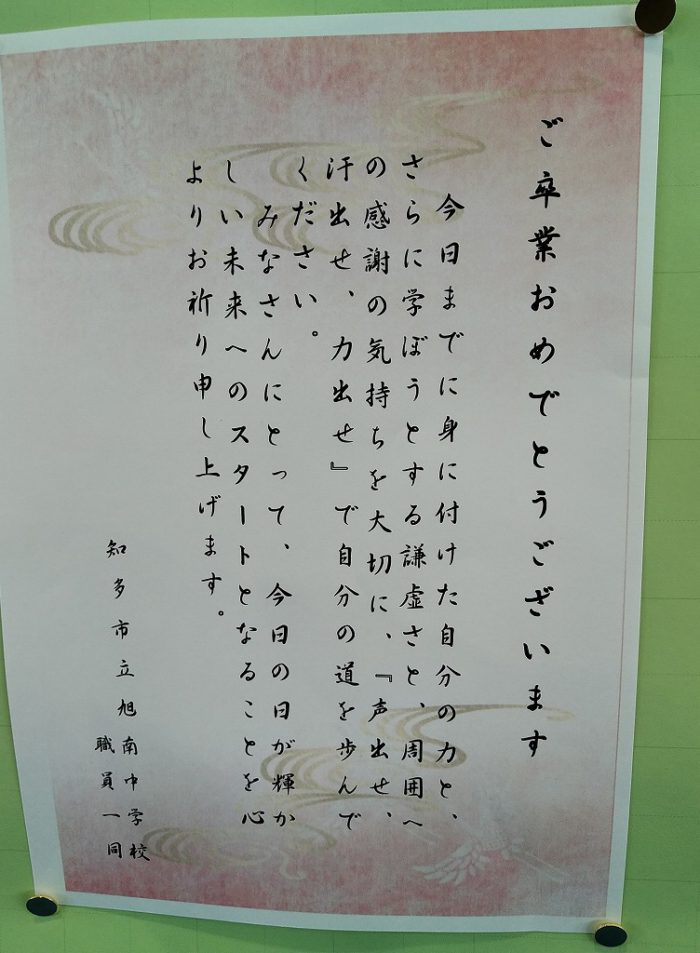 ご卒業おめでとうございます
今日までに身に付けた自分の力と、
さらに学ぼうとする謙虚さと、周囲へ
の感謝の気持ちを大切に、『声出せ、
汗出せ、力出せ』で自分の道を歩んで
ください。
みなさんにとって、今日の日が輝か
しい未来へのスタートとなることを心
よりお祈り申し上げます。
知多市立旭南中学校
職員一同